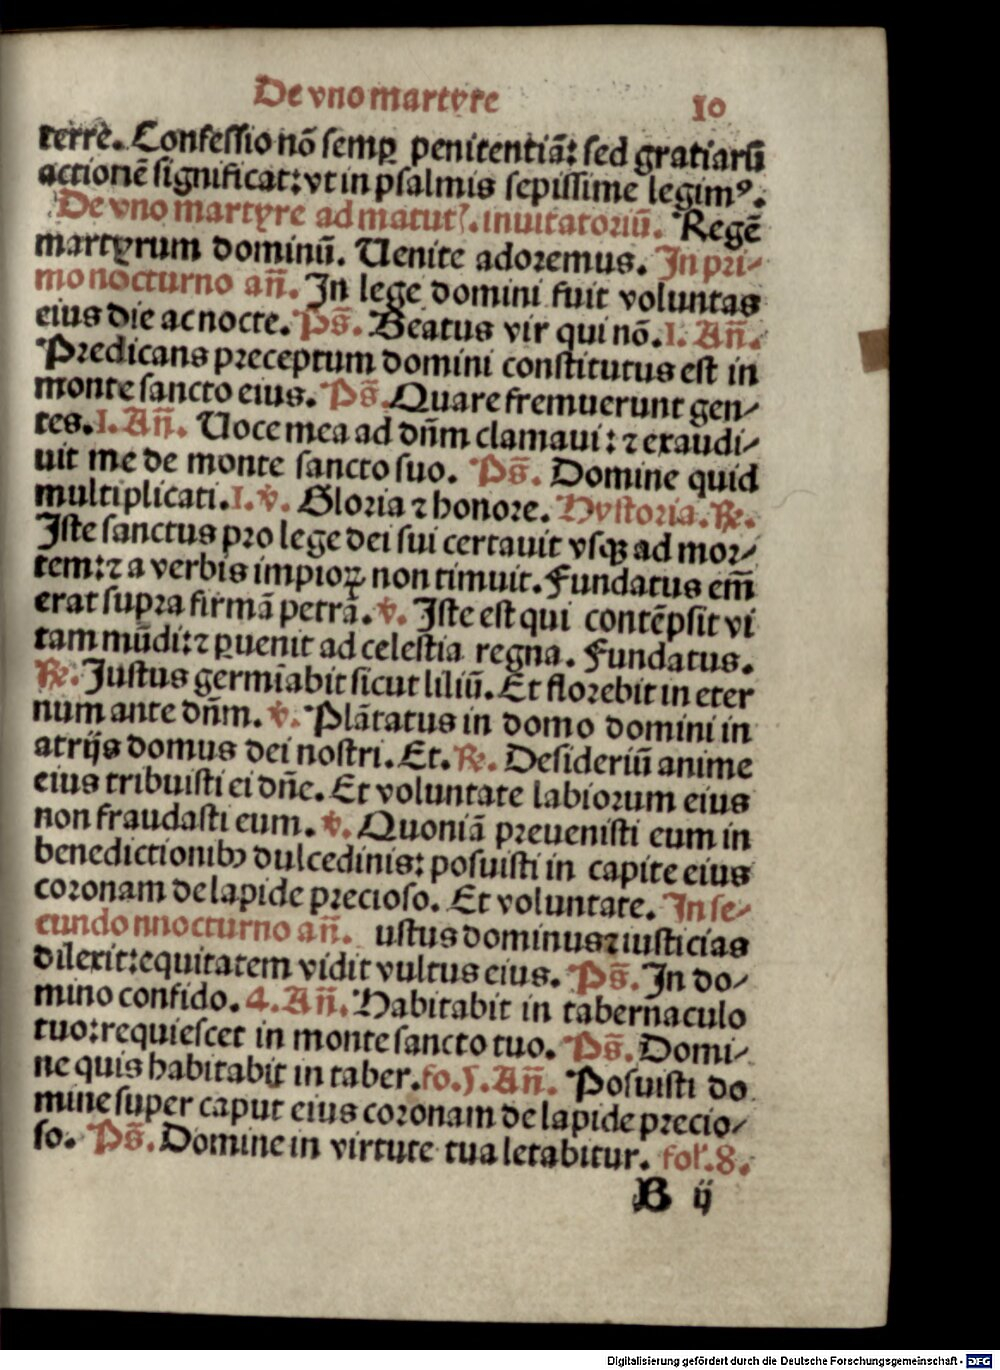 De vno martyre 10
terre. Confessio nō semꝑ penitentiā: sed gratiarū
actionē significat: vt in psalmis sepissime legimꝰ.
De vno martyre ad matut᷑. inuitatoriū. Regē
martyrum dominū. Uenite adoremus. In pri⸗
mo nocturno an̄. In lege domini fuit voluntas
eius die ac nocte. Ps̄. Beatus vir qui nō. I. An̄.
Predicans preceptum domini constitutus est in
monte sancto eius. Ps̄. Quare fremuerunt gen⸗
tes. I. An̄. Uoce mea ad dn̄m clamaui: ⁊ exaudi⸗
uit me de monte sancto suo. Ps̄. Domine quid
multiplicati. I. v̄. Gloria ⁊ honore. Hystoria. ℞.
Iste sanctus pro lege dei sui certauit vsqꝫ ad mor⸗
tem: ⁊ a verbis impioꝝ non timuit. Fundatus em̄
erat supra firmā petrā. v̄. Iste est qui contēpsit vi
tam mūdi: ⁊ ꝑuenit ad celestia regna. Fundatus.
℞. Justus germiābit sicut liliū. Et florebit in eter
num ante dn̄m. v̄. Plātatus in domo domini in
atrijs domus dei nostri. Et. ℞. Desideriū anime
eius tribuisti ei dn̄e. Et voluntate labiorum eius
non fraudasti eum. v̄. Quoniā preuenisti eum in
benedictionibꝫ dulcedinis: posuisti in capite eius
coronam de lapide precioso. Et voluntate. In se⸗
cundo nnocturno an̄. ustus dominus ⁊ iusticias
dilexit: equitatem vidit vultus eius. Ps̄. In do⸗
mino confido. 4. An̄. Habitabit in tabernaculo
tuo: requiescet in monte sancto tuo. Ps̄. Domi⸗
ne quis habitabit in taber. fo. 5. An̄. Posuisti do
mine super caput eius coronam de lapide precio⸗
so. Ps̄. Domine in virtute tua letabitur. fol. 8.
B ij
Digitalisierung gefördert durch die Deutsche Forschungsgemeinschaft - DFG